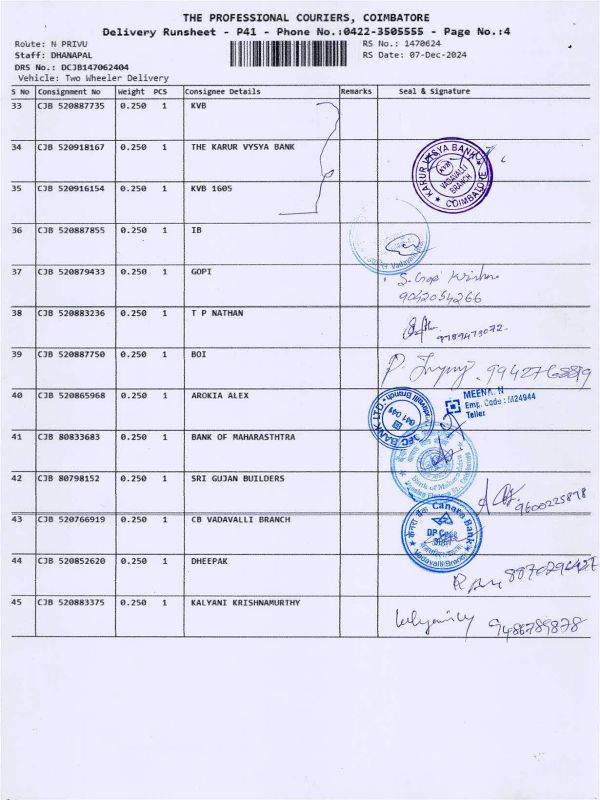 THE PROFESSIONAL COURIERS, COIMBATORE
Delivery Runsheet - P41 - Phone No.:0422-3505555 - Page No.:4
Route: N PRIVU RS No.: 1470624
Staff: DHANAPAL RS Date: 07-Dec-2024
DRS No.: DCJB147062404
Vehicle: Two Wheeler Delivery
S No Consignment No Weight PCS Consignee Details Remarks Seal & Signature
33 CJB 520887735 0.250 1 KVB
34 CJB 520918167 0.250 1 THE KARUR VYSYA BANK
KARUR VYSYA BANK
KVB
VADAVALLI
BRANCH
COIMBATORE
35 CJB 520916154 0.250 1 KVB 1605
36 CJB 520887855 0.250 1 IB
Vadavalli
37 CJB 520879433 0.250 1 GOPI
S. Gopi Krishna
9042054266
38 CJB 520883236 0.250 1 T P NATHAN
9789473072
39 CJB 520887750 0.250 1 BOI
40 CJB 520865968 0.250 1 AROKIA ALEX
MEENA. N
Emp. Code : M24944
Teller
BANK LTD.
Vadavalli Branch
041 041
41 CJB 80833683 0.250 1 BANK OF MAHARASTHTRA
Bank of Maharashtra
42 CJB 80798152 0.250 1 SRI GUJAN BUILDERS
9600225878
43 CJB 520766919 0.250 1 CB VADAVALLI BRANCH
केनरा बैंक Canara Bank
DP Code
Vadavalli Branch
44 CJB 520852620 0.250 1 DHEEPAK
45 CJB 520883375 0.250 1 KALYANI KRISHNAMURTHY
9486789878